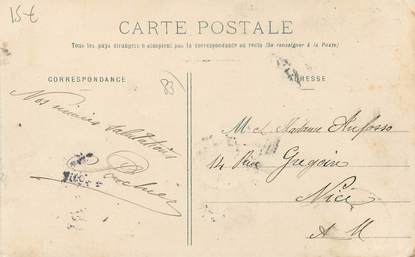 15€
CARTE POSTALE
Tous les pays étrangers n'acceptent pas la correspondance au recto (Se renseigner à la Poste)
CORRESPONDANCE
ADRESSE
83
Nos salutations
M et Madame Anfosso
14 Rue Gregoin
Nice
A M